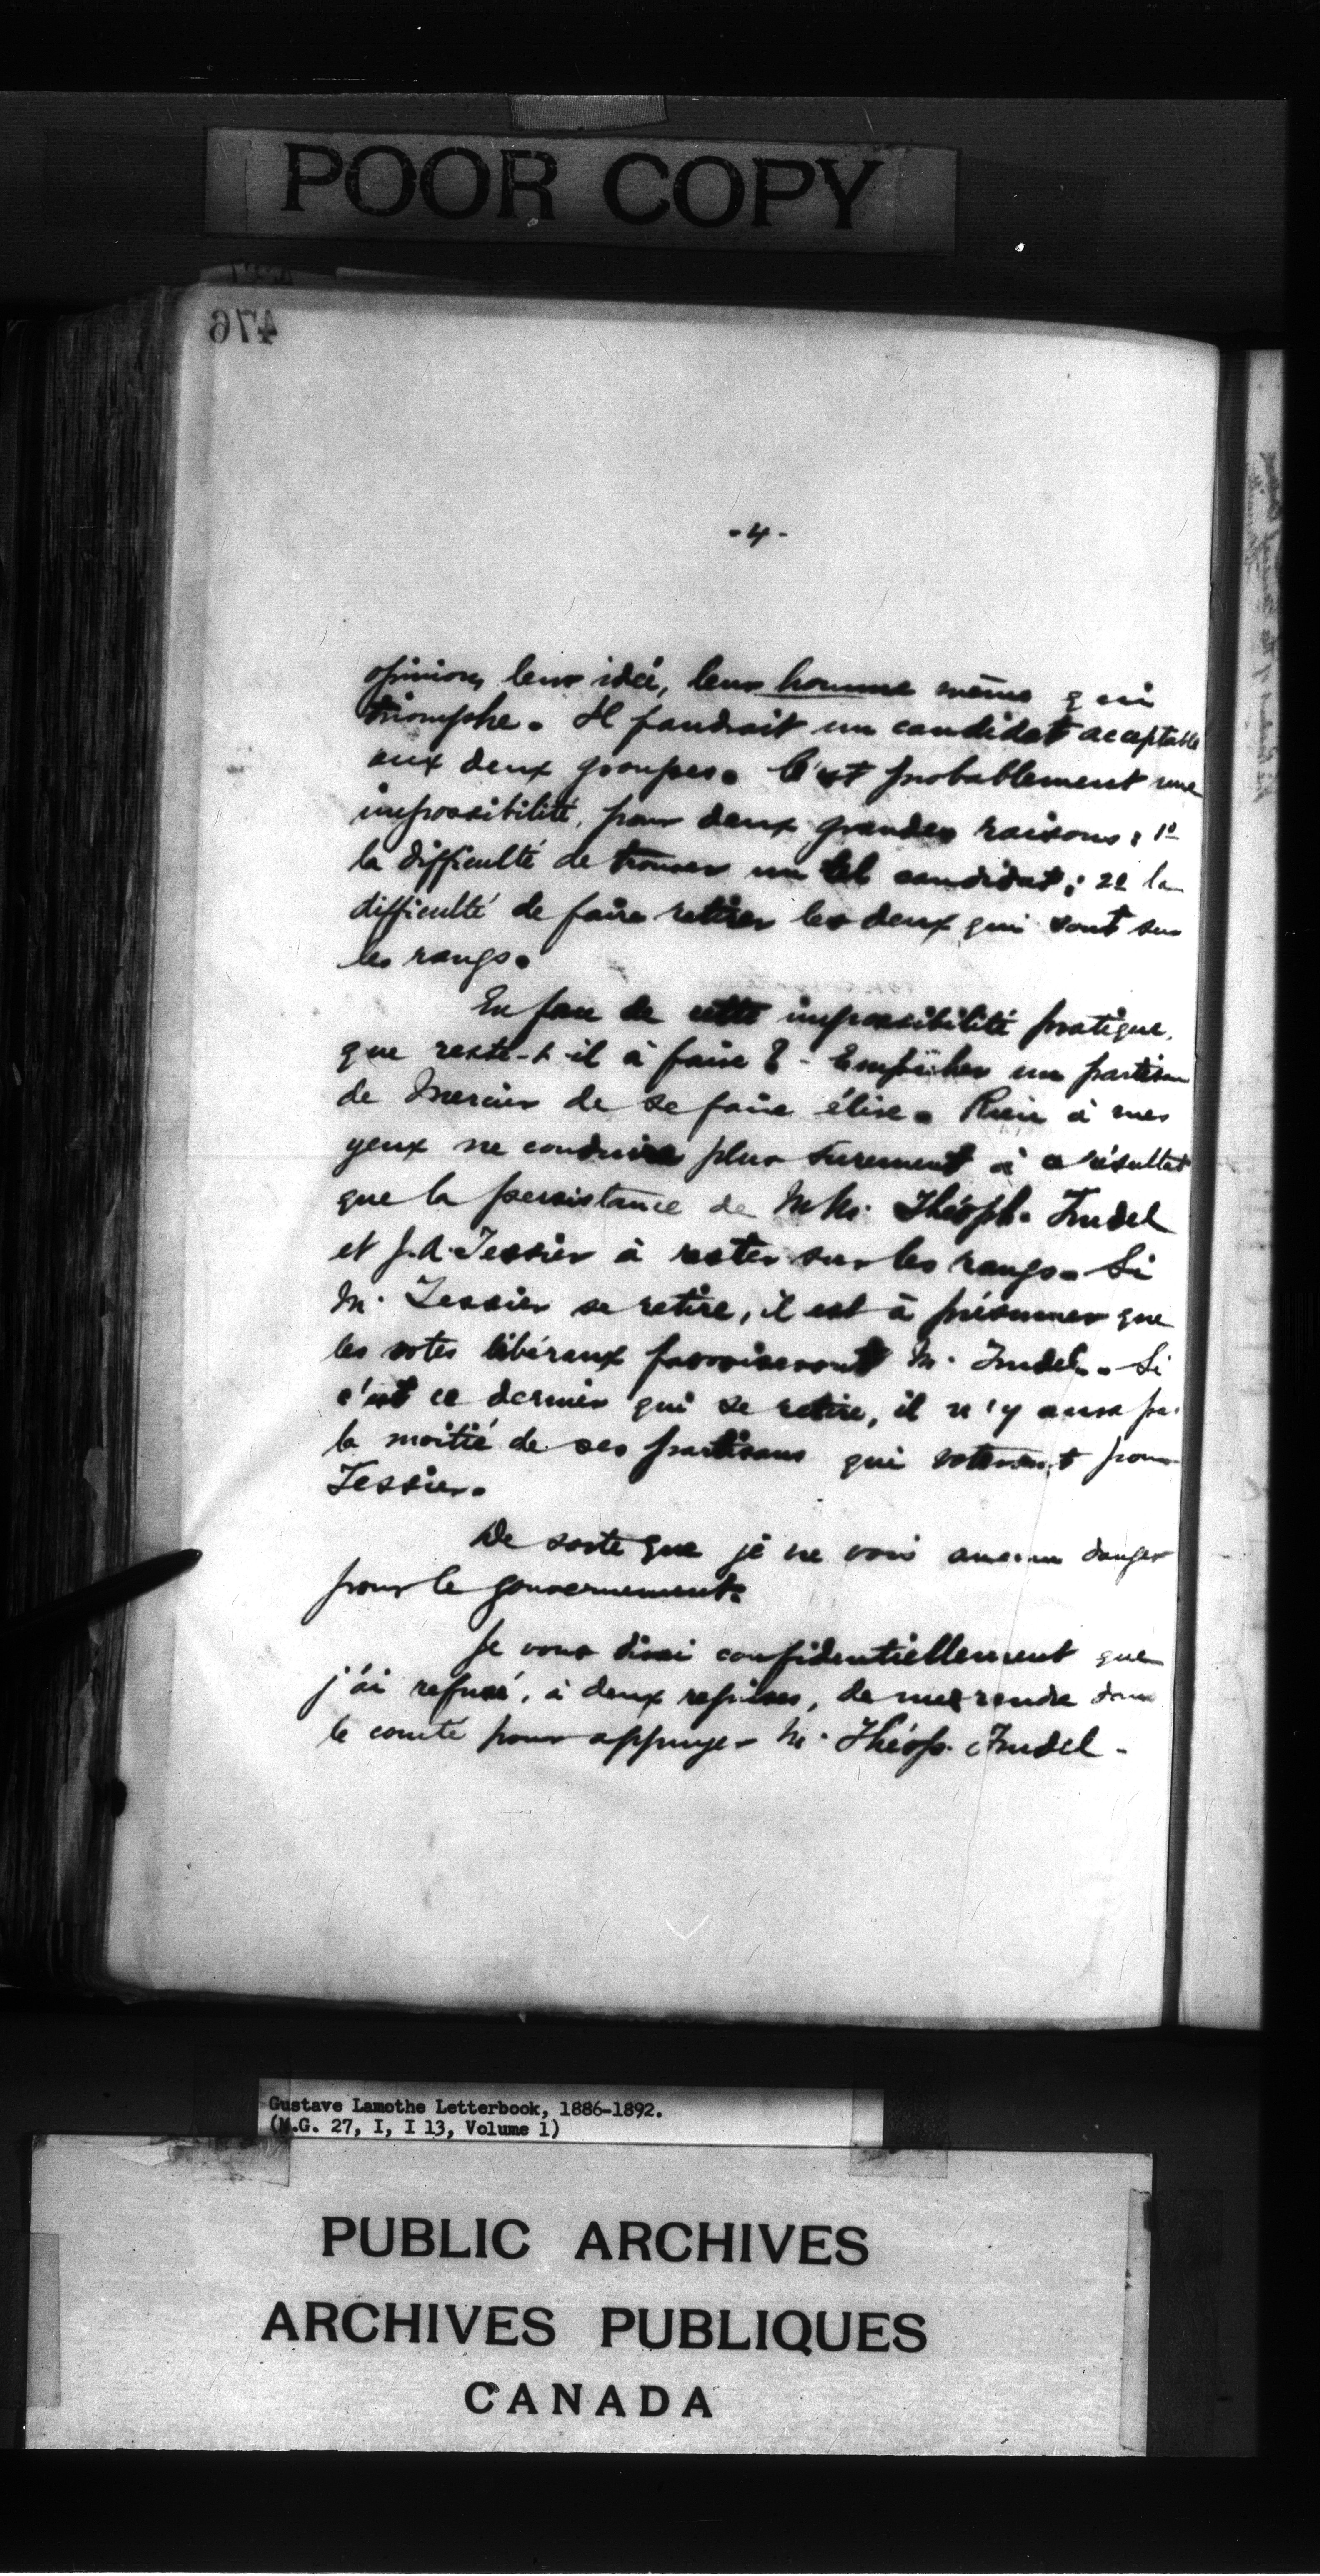 POOR COPY
476
- 4 -
opinion, leur idée, leur homme même qui
triomphe. Il faudrait un candidat acceptable
aux deux groupes. C'est probablement une
impossibilité, pour deux grandes raisons : 1º
la difficulté de trouver un tel candidat ; 2º la
difficulté de faire retirer les deux qui sont sur
les rangs.
En face de cette impossibilité pratique,
que reste-t-il à faire ? - Empêcher un partisan
de Mercier de se faire élire. Rien à mes
yeux ne conduira plus surement à ce résultat
que la persistance de MM. Théoph. Trudel
et J. A. Tessier à rester sur les rangs. Si
M. Tessier se retire, il est à présumer que
les votes libéraux favoriseront M. Trudel. Si
c'est ce dernier qui se retire, il n'y aura pas
la moitié de ses partisans qui voteront pour
Tessier.
De sorte que je ne vois aucun danger
pour le gouvernement.
Je vous dirai confidentiellement que
j'ai refusé, à deux reprises, de me rendre dans
le comté pour appuyer M. Théop. Trudel -
Gustave Lamothe Letterbook, 1886-1892.
(M.G. 27, I, I 13, Volume 1)
PUBLIC ARCHIVES
ARCHIVES PUBLIQUES
CANADA